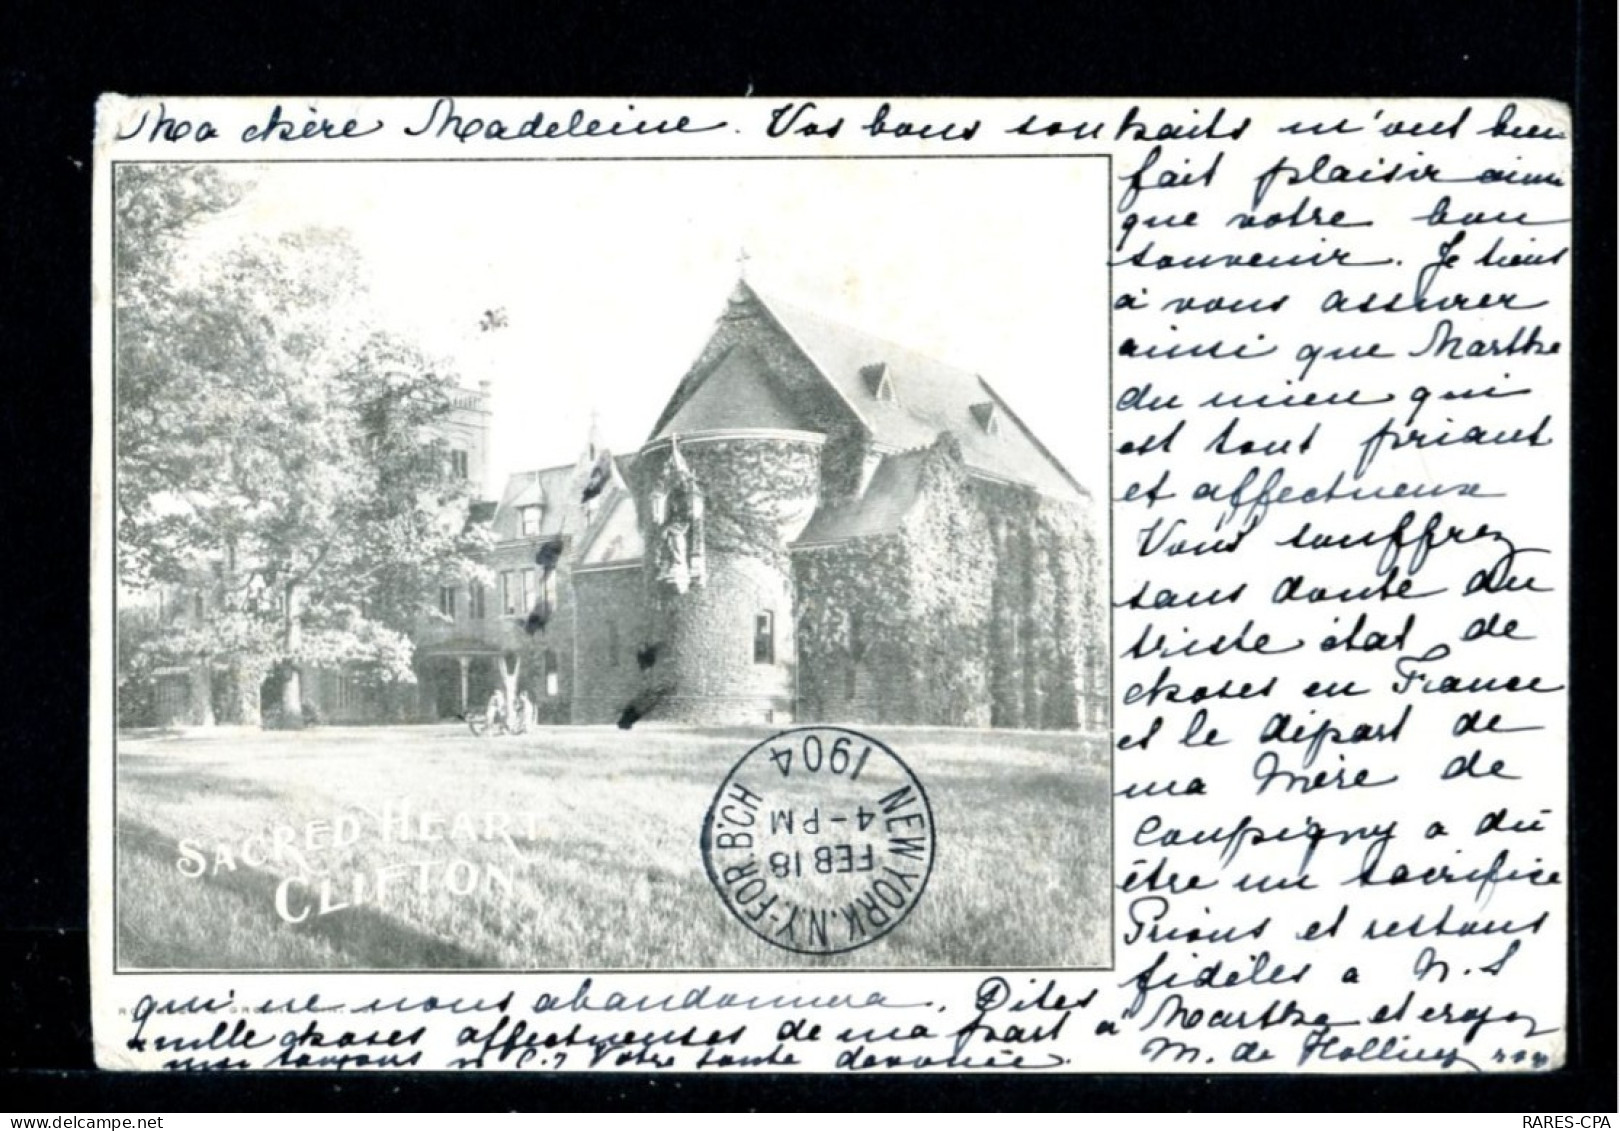 Ma chère Madeleine. Vos bons souhaits m'ont bien
fait plaisir ainsi
que votre bon
souvenir. Je tiens
à vous assurer
ainsi que Marthe
du mien qui
est tout priant
et affectueux
Vous souffrez
sans doute du
triste état de
choses en France
et le départ de
ma Mère de
a dû
être un sacrifice
Prions et restons
fidèles a N. S
qui ne nous abandonnera. Dites
mille choses affectueuses de ma part à Marthe et croyez
moi toujours Votre toute dévouée.
M. de
SACRED HEART
CLIFTON
NEW YORK, N.Y.-FOR. B'CH
FEB 18
4-PM
1904
RARES-CPA